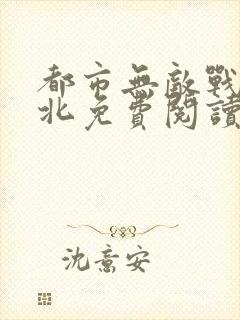 都市無敵戰
北免費閱讀
沈意安